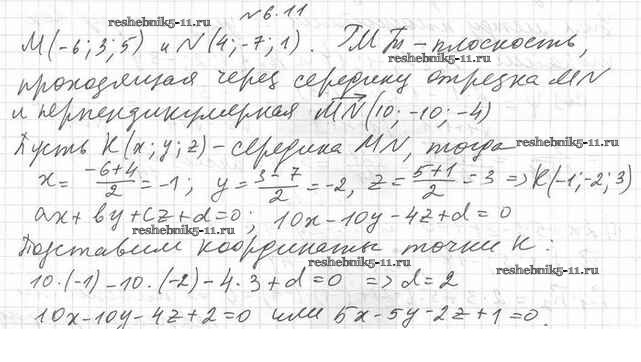 №6.11
reshebnik5-11.ru
M(-6; 3; 5) и N(4; -7; 1). ГМТ - плоскость,
проходящая через середину отрезка MN
и перпендикулярная MN(10; -10; -4)
Пусть K(x; y; z) - середина MN, тогда
reshebnik5-11.ru
x = (-6+4)/2 = -1; y = (3-7)/2 = -2, z = (5+1)/2 = 3 => K(-1; -2; 3)
ax + by + cz + d = 0; 10x - 10y - 4z + d = 0
reshebnik5-11.ru
Подставим координаты точки K:
reshebnik5-11.ru
reshebnik5-11.ru
10·(-1) - 10·(-2) - 4·3 + d = 0 => d = 2
10x - 10y - 4z + 2 = 0 или 5x - 5y - 2z + 1 = 0.